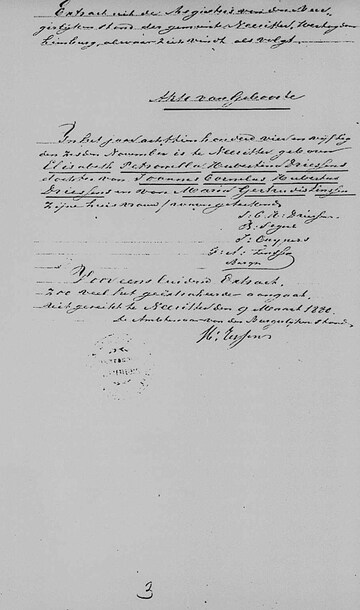 Extract uit de Registers van den Bur-
gerlijken stand der gemeente Neeritter, Hertogdom
Limburg, alwaar zich vindt als volgt.
Akte van Geboorte
In het jaar achttien honderd vier en vijftig
den zesden November is te Neeritter geboren
Elisabeth Petronella Hubertina Driessens
dochter van Joannes Cornelus Hubertus
Driessens en van Maria Gertrudis
zijne huisvrouw
J. C. H. Driessens
J. Cuypers
Voor eensluidend Extract,
zoo veel het geëxtraheerde aangaat.
uitgereikt te Neeritter den 9 Maart 1880.
De Ambtenaar van den Burgerlijken stand,
3